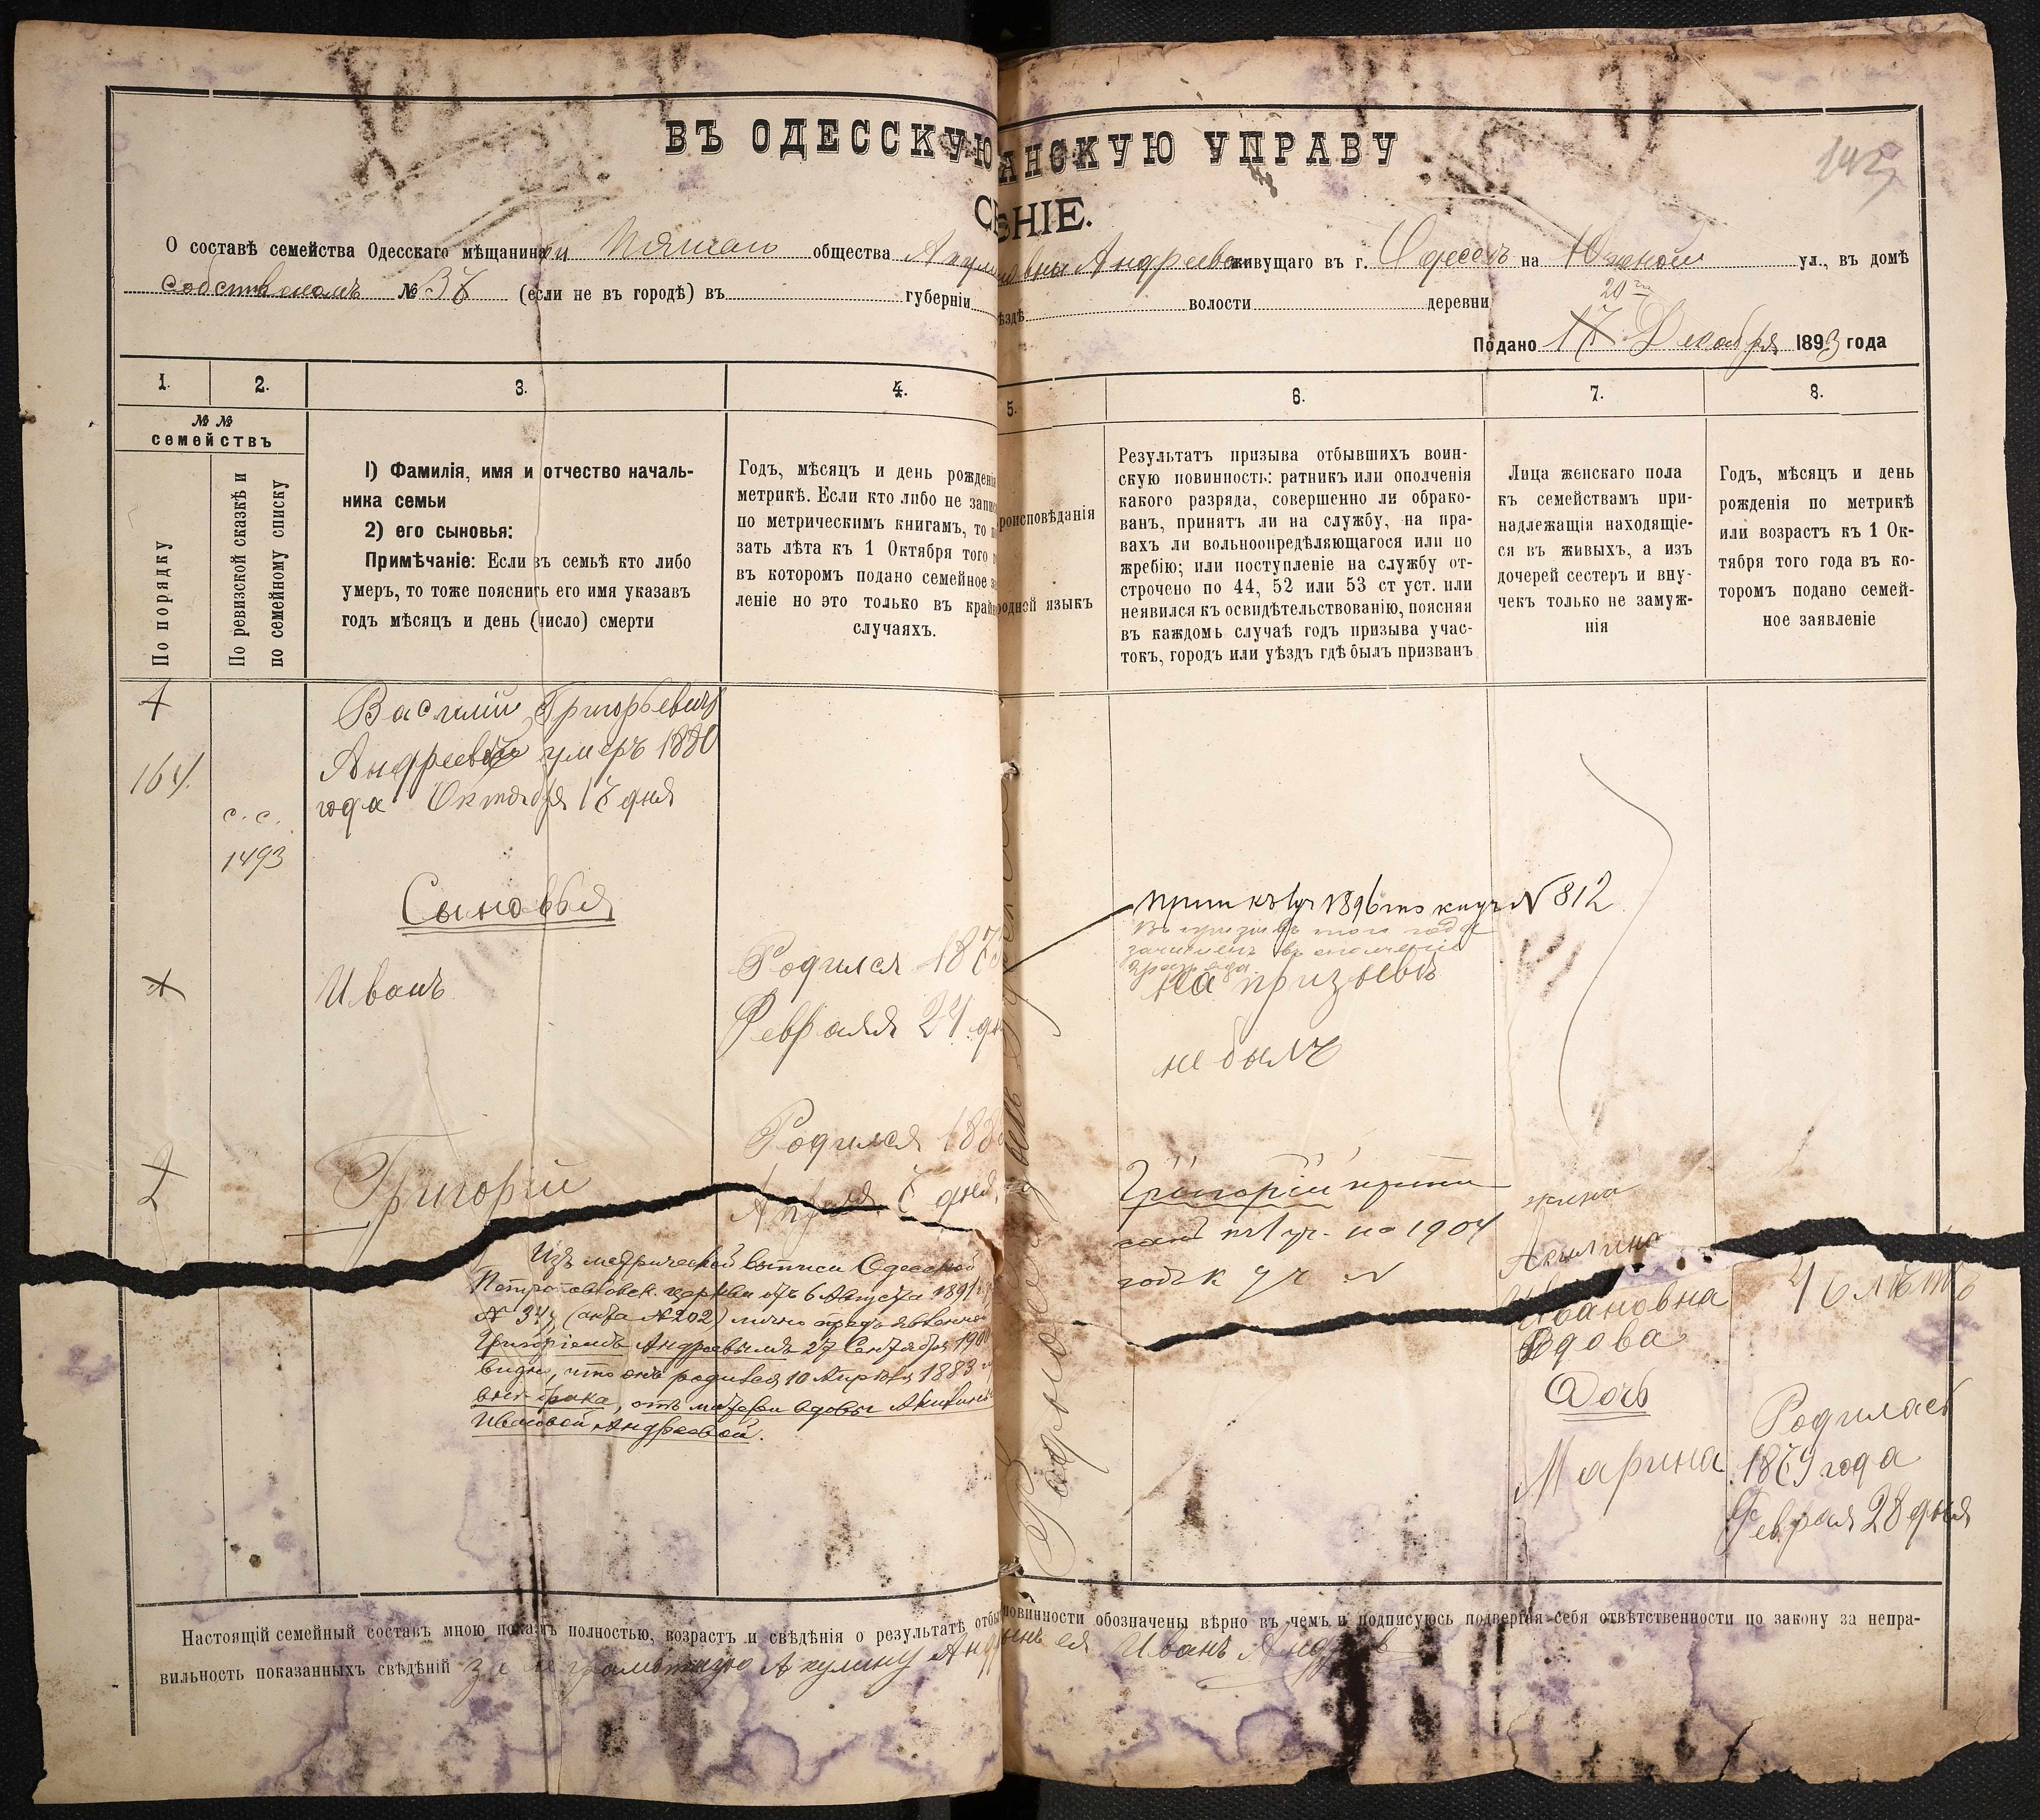 ВЪ ОДЕССКУЮ АНСКУЮ УПРАВУ
ЕНІЕ.
О составѣ семейства Одесскаго мѣщанина общества Андреевой живущаго въ г. Одессѣ на Южной ул., въ домѣ
собственомъ № 37 (если не въ городѣ) въ губерніи ѣздѣ волости деревни
20го
Подано 17 Декабря 1893 года
1. 2. 3. 4. 5. 6. 7. 8.
№ №
семействъ
По порядку
По ревизской сказкѣ и
по семейному списку
1) Фамилія, имя и отчество началь-
ника семьи
2) его сыновья:
Примѣчаніе: Если въ семьѣ кто либо
умеръ, то тоже пояснить его имя указавъ
годъ мѣсяцъ и день (число) смерти
Годъ, мѣсяцъ и день рожденія
метрикѣ. Если кто либо не запис
по метрическимъ книгамъ, то п
зать лѣта къ 1 Октября того г
въ котором подано семейное з
леніе но это только въ крайн
случаяхъ.
роисповѣданія
одной языкъ
Результатъ призыва отбывшихъ воин-
скую повинность: ратникъ или ополченія
какого разряда, совершенно ли обрако-
ванъ, принятъ ли на службу, на пра-
вахъ ли вольноопредѣляющагося или по
жребію; или поступленіе на службу от-
строчено по 44, 52 или 53 ст уст. или
неявился къ освидѣтельствованію, поясняя
въ каждомъ случаѣ годъ призыва учас-
токъ, городъ или уѣздъ гдѣ былъ призванъ
Лица женскаго пола
къ семействамъ при-
надлежащія находящіе-
ся въ живыхъ, а изъ
дочерей сестеръ и вну-
чекъ только не замуж-
нія
Годъ, мѣсяцъ и день
рожденія по метрикѣ
или возрастъ къ 1 Ок-
тября того года въ ко-
торомъ подано семей-
ное заявленіе
Василій Григорьевичъ
Андреевъ умеръ 1880
года Октября 17 дня
164.
с. с.
1493
Сыновья
Иванъ
Родился 187
Февраля 24 дн
1896 N 812
Въ призывѣ того года
зачисленъ въ ополченіе
2 разряда.
на призывѣ
не былъ
2
Григорій
Родился 188
Апреля 7 дня
Григорій
1904
года к уч N
жена
Акилина
Ивановна
Вдова
46 лѣтъ
Изъ метрической выписи Одесской
Петропавловск. церкви отъ 6 Августа 1891
(акта №202) лично предъявленной
Григоріемъ Андреевымъ 27 Сентября 190
видно, что онъ родился 10 Апрѣля 1883
внѣ брака, отъ матери вдовы Акилины
Ивановой Андреевой.
Дочь
Марина
Родилась
1879 года
Февраля 28 дня
Настоящій семейный составъ мною показъ полностью, возрастъ и свѣдѣнія о результатѣ отбы повинности обозначены вѣрно въ чемъ и подписуюсь подвергая себя отвѣтственности по закону за непра-
вильность показанныхъ свѣдѣній за неграмотную Акулину Анд сынъ ея Иванъ Андреев